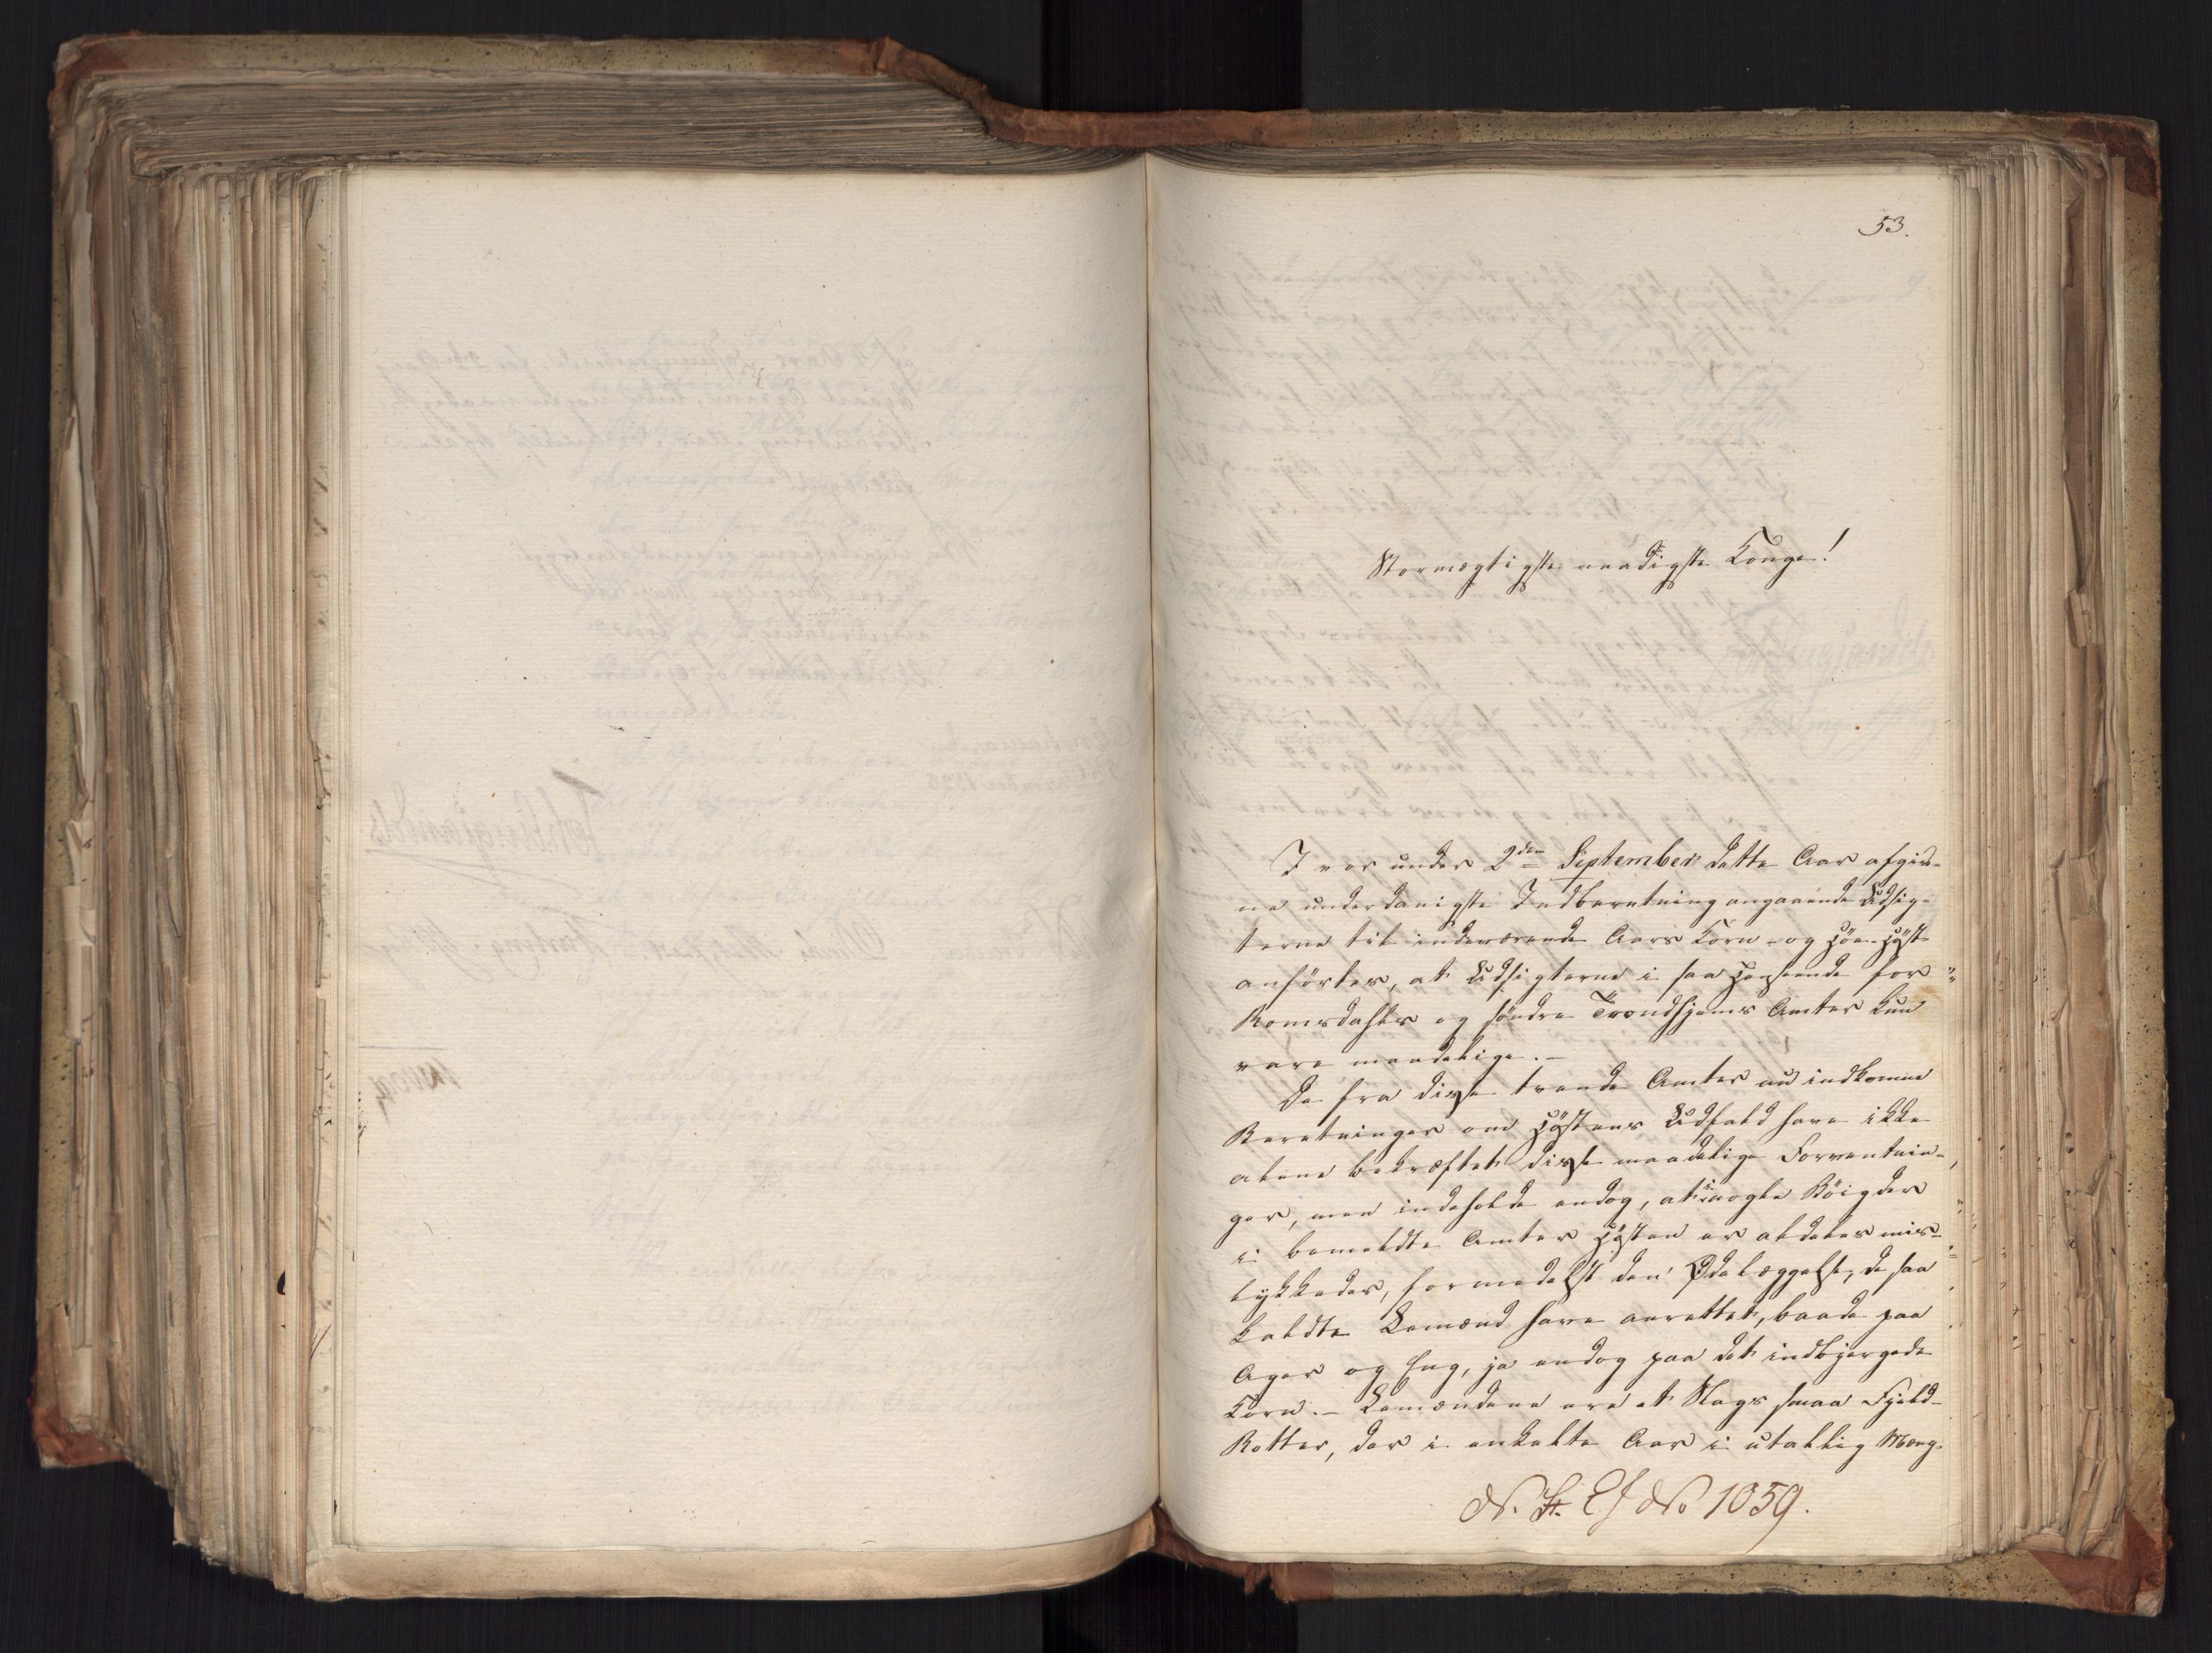 53.
Stormægtigste naadigste Konge!
I vor under 2den September dette Aar afgiv-
ne underdanigste Indberetning angaaende Udsig-
terne til indeværende Aars Korn- og Höe-Höst
anförtes, at Udsigterne i saa Henseende for
Romsdahls og söndre Trondhjems Amter kun
vare maadelige.-
De fra disse tvende Amter nu indkomne
Beretninger om Höstens Udfald have ikke
alene bekræftet disse maadelige Forventnin-
ger, men indeholde endog, at i nogle Böigder
i bemeldte Amter Hösten er aldeles mis-
lykkedes, formedelst den Ødelæggelse, de saa
kaldte Lemænd have anrettet, baade paa
Ager og Eng, ja endog paa det indbjergede
Korn.- Lemændene ere et Slags smaa Fjeld-
Rotter, der i enkelte Aar i utallig Mæng-
N. St. Ef No 1059.